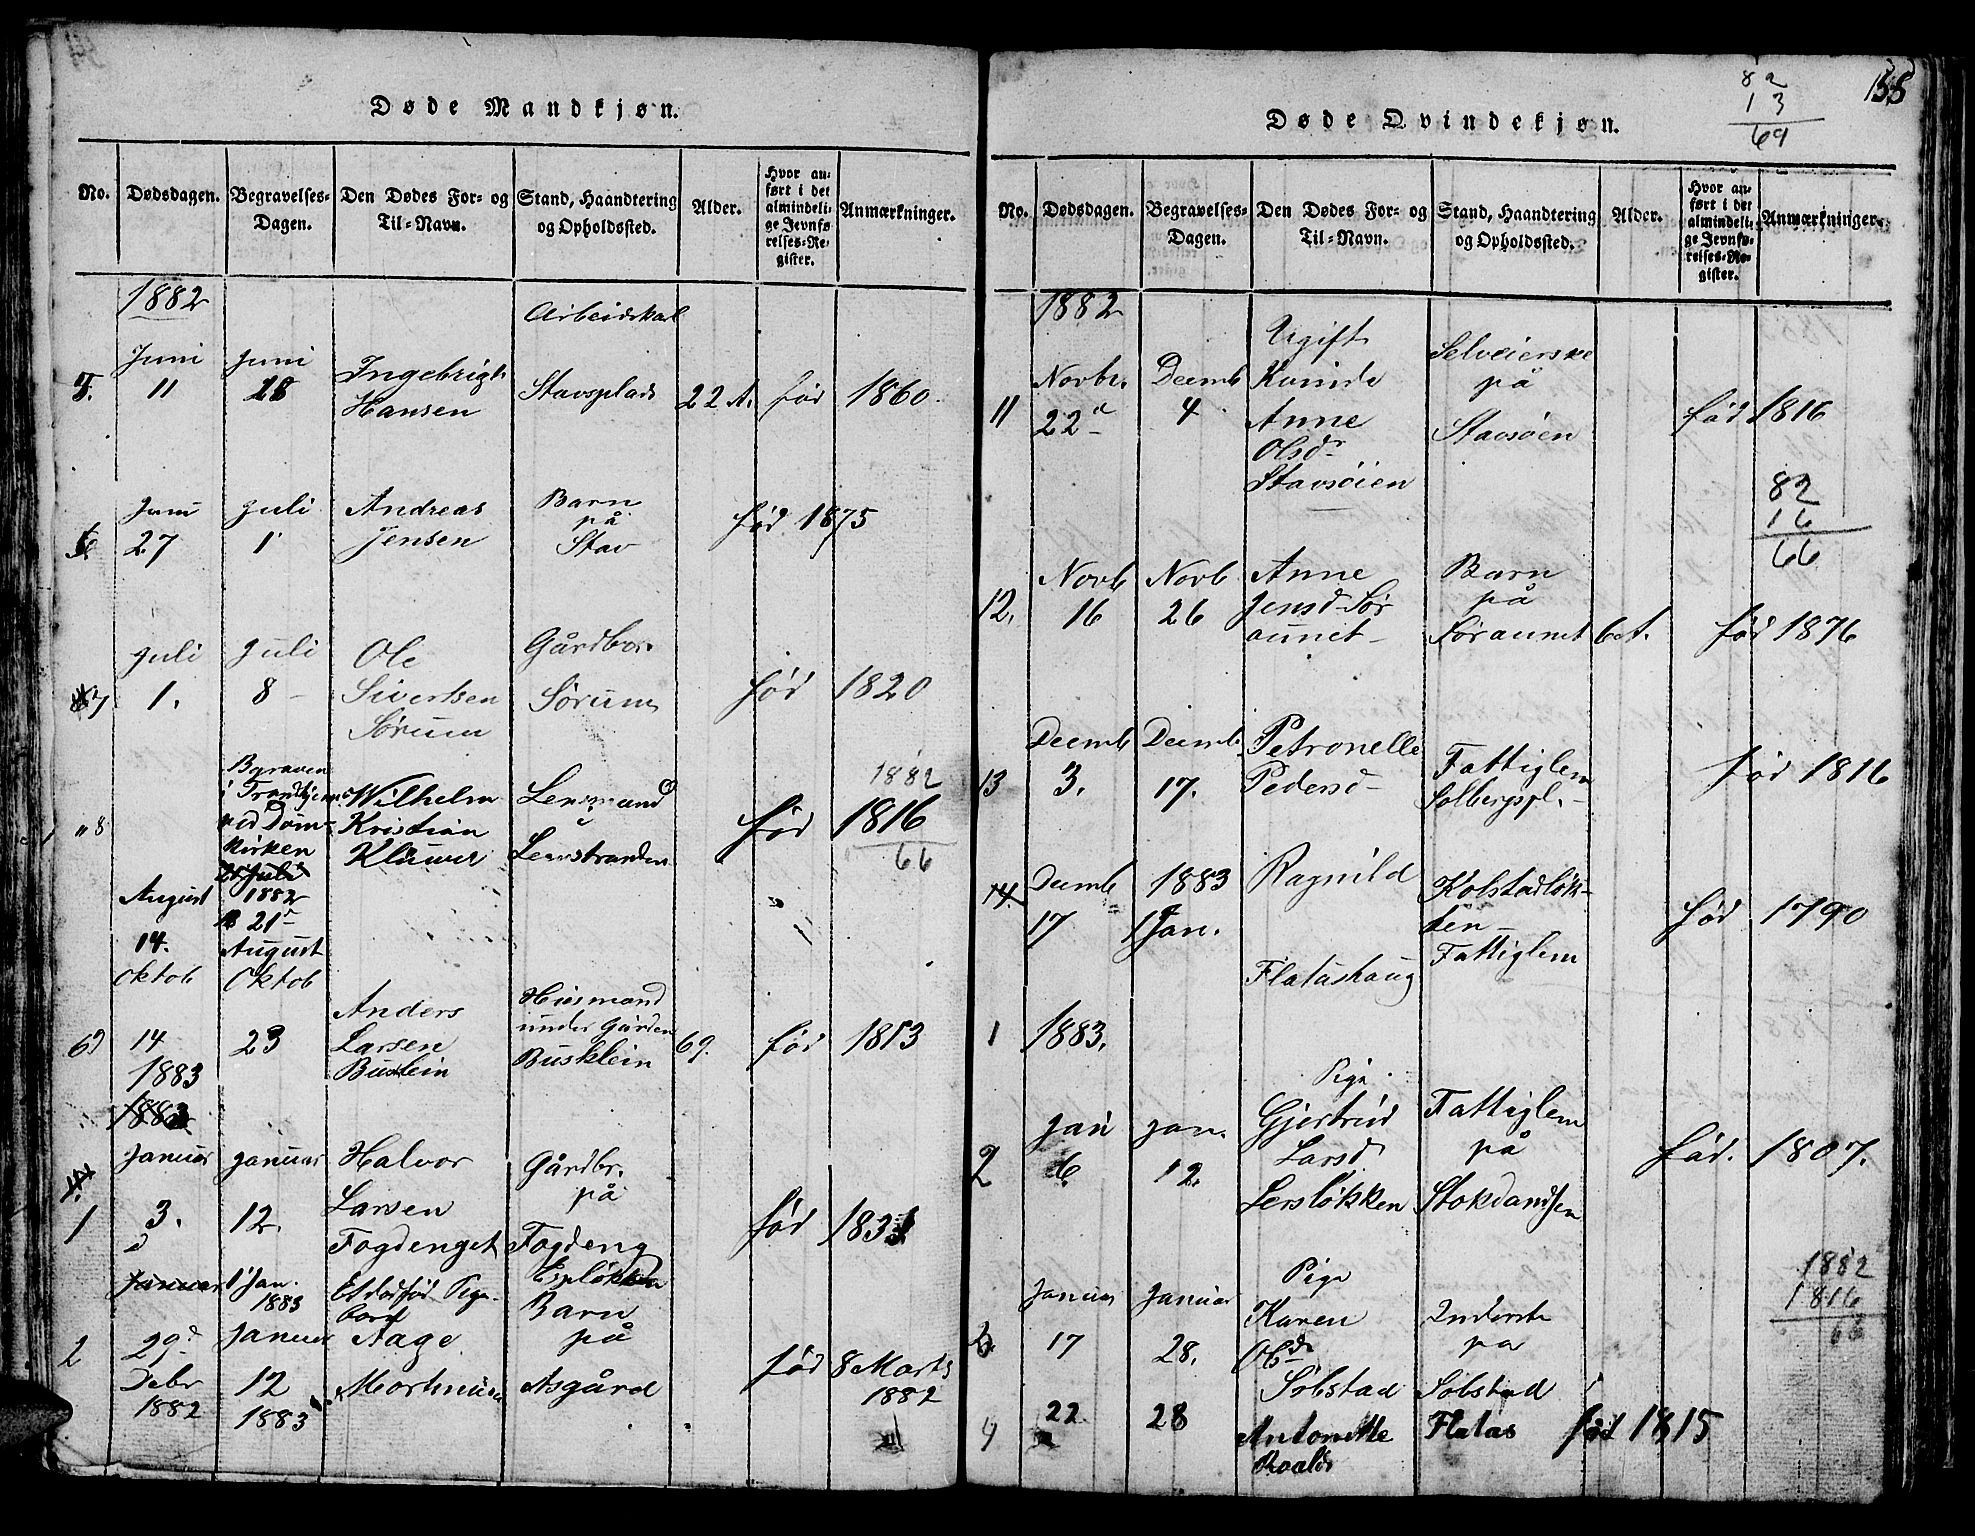 158
82
13
69
Døde Mandkjøn.
No. Dødsdagen. Begravelses-Dagen. Den Dødes For- og Til-Navn. Stand, Haandtering og Opholdssted. Alder. Hvor anført i det almindelige Jevnførelses-Register. Anmærkninger.
1882
Arbeidskarl
Juni Juni Ingebrigt
11 18 Hansen Stavsplads 22 A. Fød 1860
Juni Juli Andreas Barn
på
27 1 Jensen Stav Fød 1875
Juli Juli Ole Gårdbr.
7 1. 8 – Sivertsen Sørum Fød 1820
Sørum
Bgraven
i Trondhjem Wilhelm Lensmand
8 ved Dom- Kristian Fød 1816
kirken Klüwer Leinstranden
1882
66
1882
August 21
14. August
Oktob Oktob Anders Husmand
under Gården
14 23 Larsen Busklein 69. Fød 1813
Buslein
1883
1883
Januar Januar Halvor Gårdbr.
på
1 3. 12. Larsen
Fogdenget Fogdeng Fød
Januar 1 Jan. Et dødfød Pige- Espløkken
1883 barn Barn
2 29 Januar Aage på
Debr 12 Martinus Asgård Fød 8 Marts
1882 1883 1882
Døde Qvindekjøn.
No. Dødsdagen. Begravelses-Dagen. Den Dødes For- og Til-Navn. Stand, Haandtering og Opholdssted. Alder. Hvor anført i det almindelige Jevnførelses-Register. Anmærkninger.
1882
Ugift Selveierske
Novbr. Decmb Kvinde på
11 22 4 Anne Stavsøen Fød 1816
Olsdr
Stavsøien
82
16
66
Novb Novb Anne Barn
på
12. 16 26 Jensd Sør
aunet Søraunet 6 A. Fød 1876
Decmb Decmb. Petronelle Fattiglem
13 3. 17. Pedersd Solbergspl. Fød 1816
Decmb 1883 Ragnild Kolstadløk-
14 17 1 Jan. ken Fød 1790
Flatåshaug Fattiglem
1 1883.
Pige
Jan Jan. Gjertrud Fattiglem
2 6. 12. Larsd på Fød. 1807.
Lersløkken
Pige
Januar Januar Karen Inderst
17 28. Olsdr på
Solstad Solstad
1882
1816
66
4 22 28 Antonette Flatås Fød 1815
Roalds